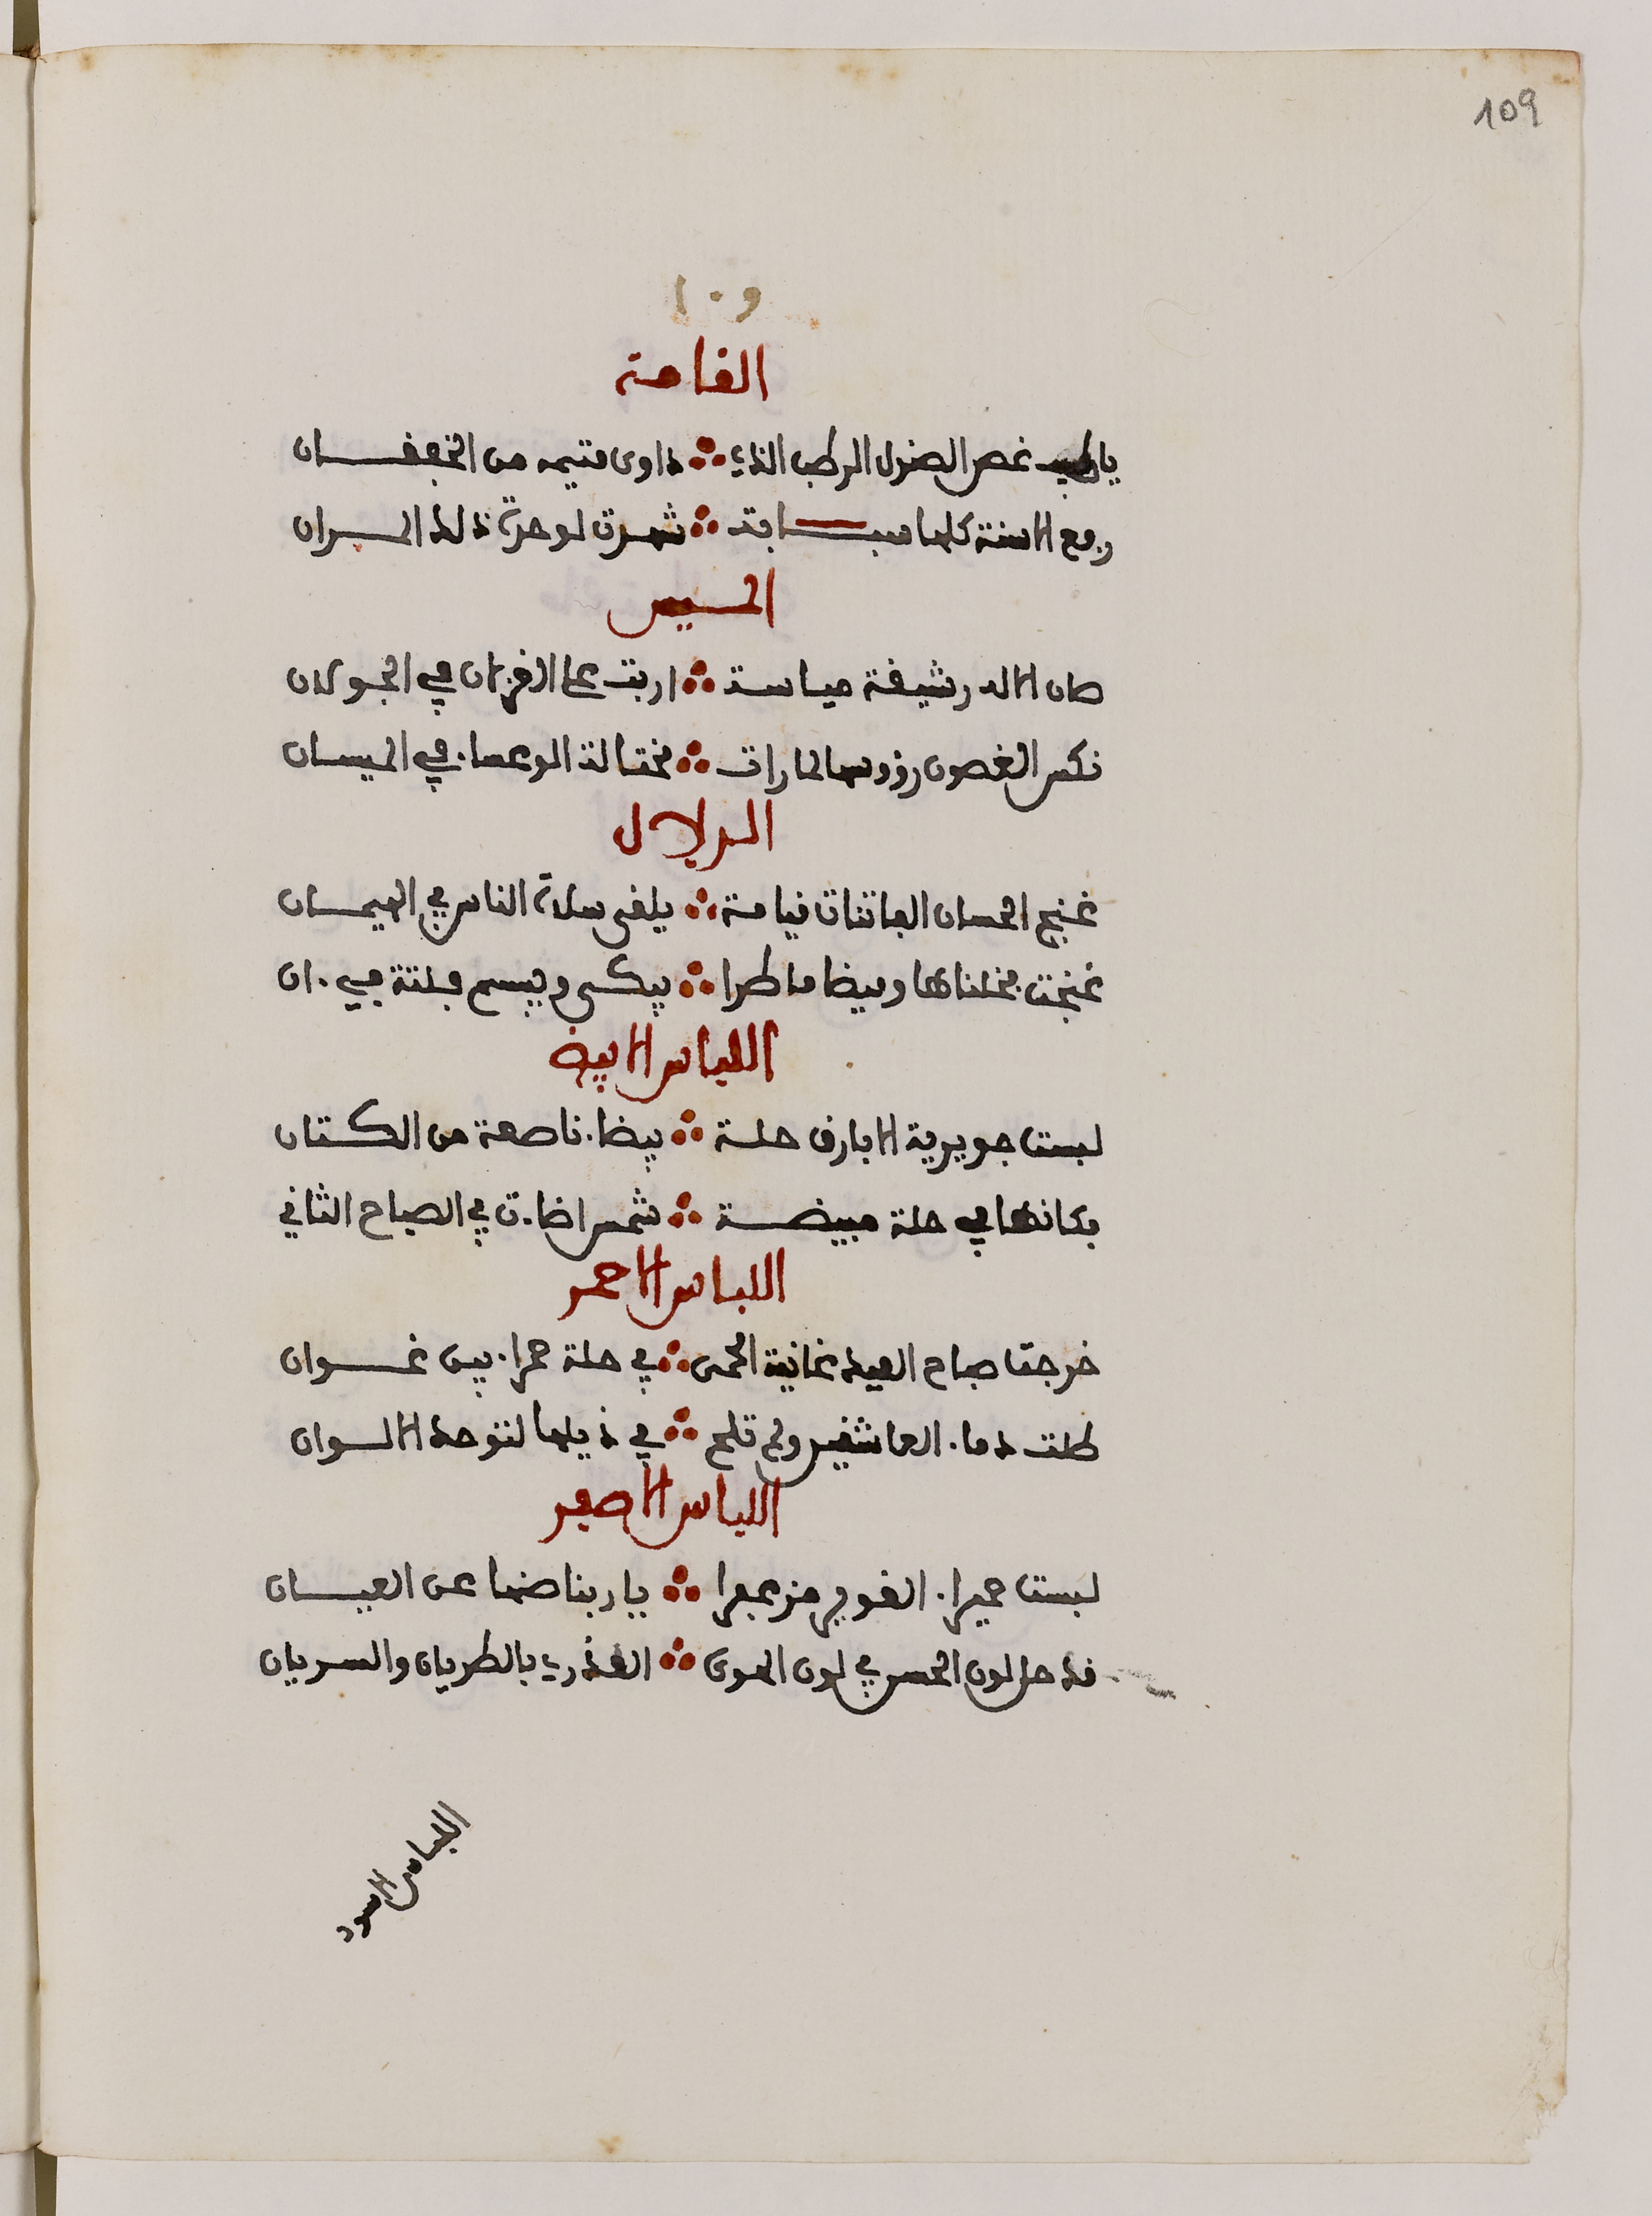 109
١٠٩
القامة
يا طيب غصن الصندل الرطب الذي ∴ داوى متيمه من الخفقان
رفع الاسنة كلها سبابة ∴ شهرت لوحدة ذلك المران
الميس
صان الاله رشيقة مياسة ∴ اربت على الغزلان في الجولان
نكس الغصون رؤوسها لما رات ∴ مختالة الوعساء في الميسان
الدلال
غنج الحسان الفاتنات قيامة ∴ يلقى سكارى الناس في الهيمان
غنجت بمقلتاها وبيضا ماطرا ∴ يبكي ويبسم فلتة في ءان
اللباس الابيض
لبست جويرية الابارق حلة ∴ بيضاء ناصعة من الكتان
فكانها في حلة مبيضة ∴ شمس اضاءت في الصباح الثاني
اللباس الاحمر
خرجت صباح العيد غانية الحمى ∴ في حلة حمراء بين غوان
طلت دماء العاشقين ولم تلح ∴ في ذيلها لتوحد الالوان
اللباس الاصفر
لبست حميراء الغوير مزعفرا ∴ يا ربنا صنها عن العيان
قد حل لون الحسن في لون الهوى ∴ العذري بالطريان والسريان
اللباس الاسود